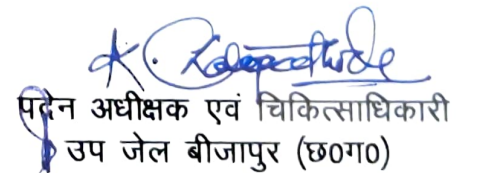 पदेन अधीक्षक एवं चिकित्साधिकारी
उप जेल बीजापुर (छ0ग0)